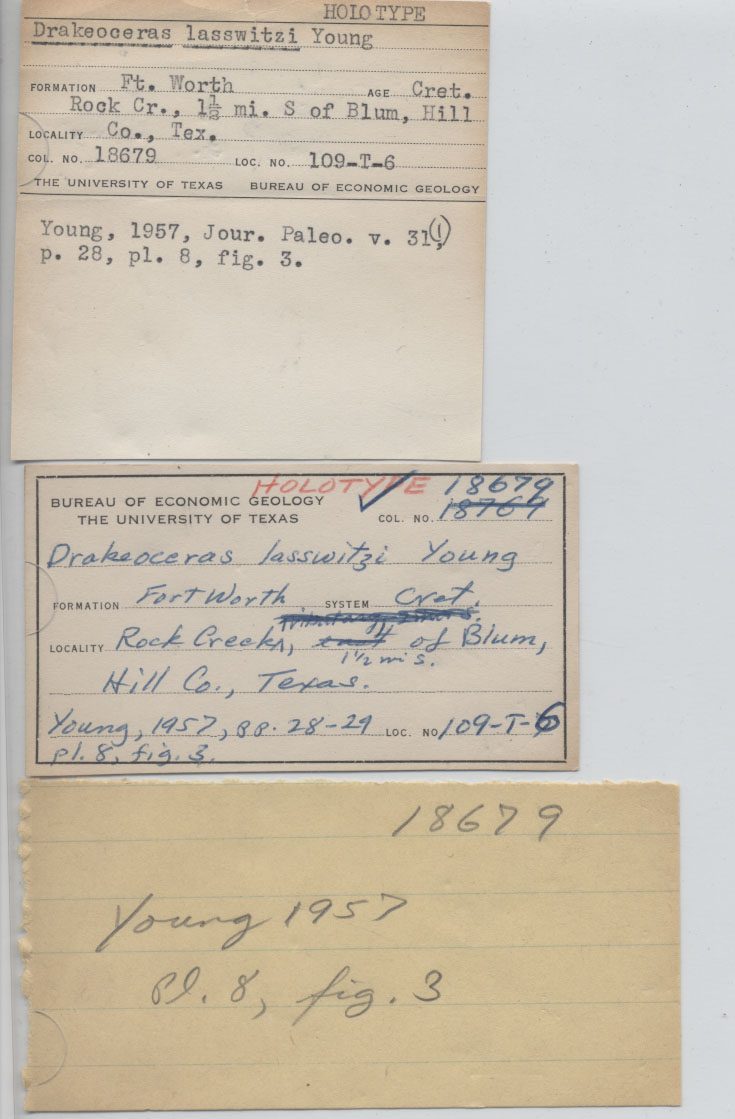 HOLOTYPE
Drakeoceras lasswitzi Young
FORMATION Ft. Worth AGE Cret.
Rock Cr., 1½ mi. S of Blum, Hill
LOCALITY Co., Tex.
COL. NO. 18679 LOC. NO. 109-T-6
THE UNIVERSITY OF TEXAS BUREAU OF ECONOMIC GEOLOGY
Young, 1957, Jour. Paleo. v. 31(1),
p. 28, pl. 8, fig. 3.
HOLOTYPE 18679
BUREAU OF ECONOMIC GEOLOGY
THE UNIVERSITY OF TEXAS COL. NO. 18764
Drakeoceras lasswitzi Young
FORMATION Fort Worth SYSTEM Cret.
LOCALITY Rock Creek, east of Blum,
1 1/2 mi S.
Hill Co., Texas.
Young, 1957, pp. 28-29 LOC. NO. 109-T-6
pl. 8, fig. 3.
18679
Young 1957
pl. 8, fig. 3